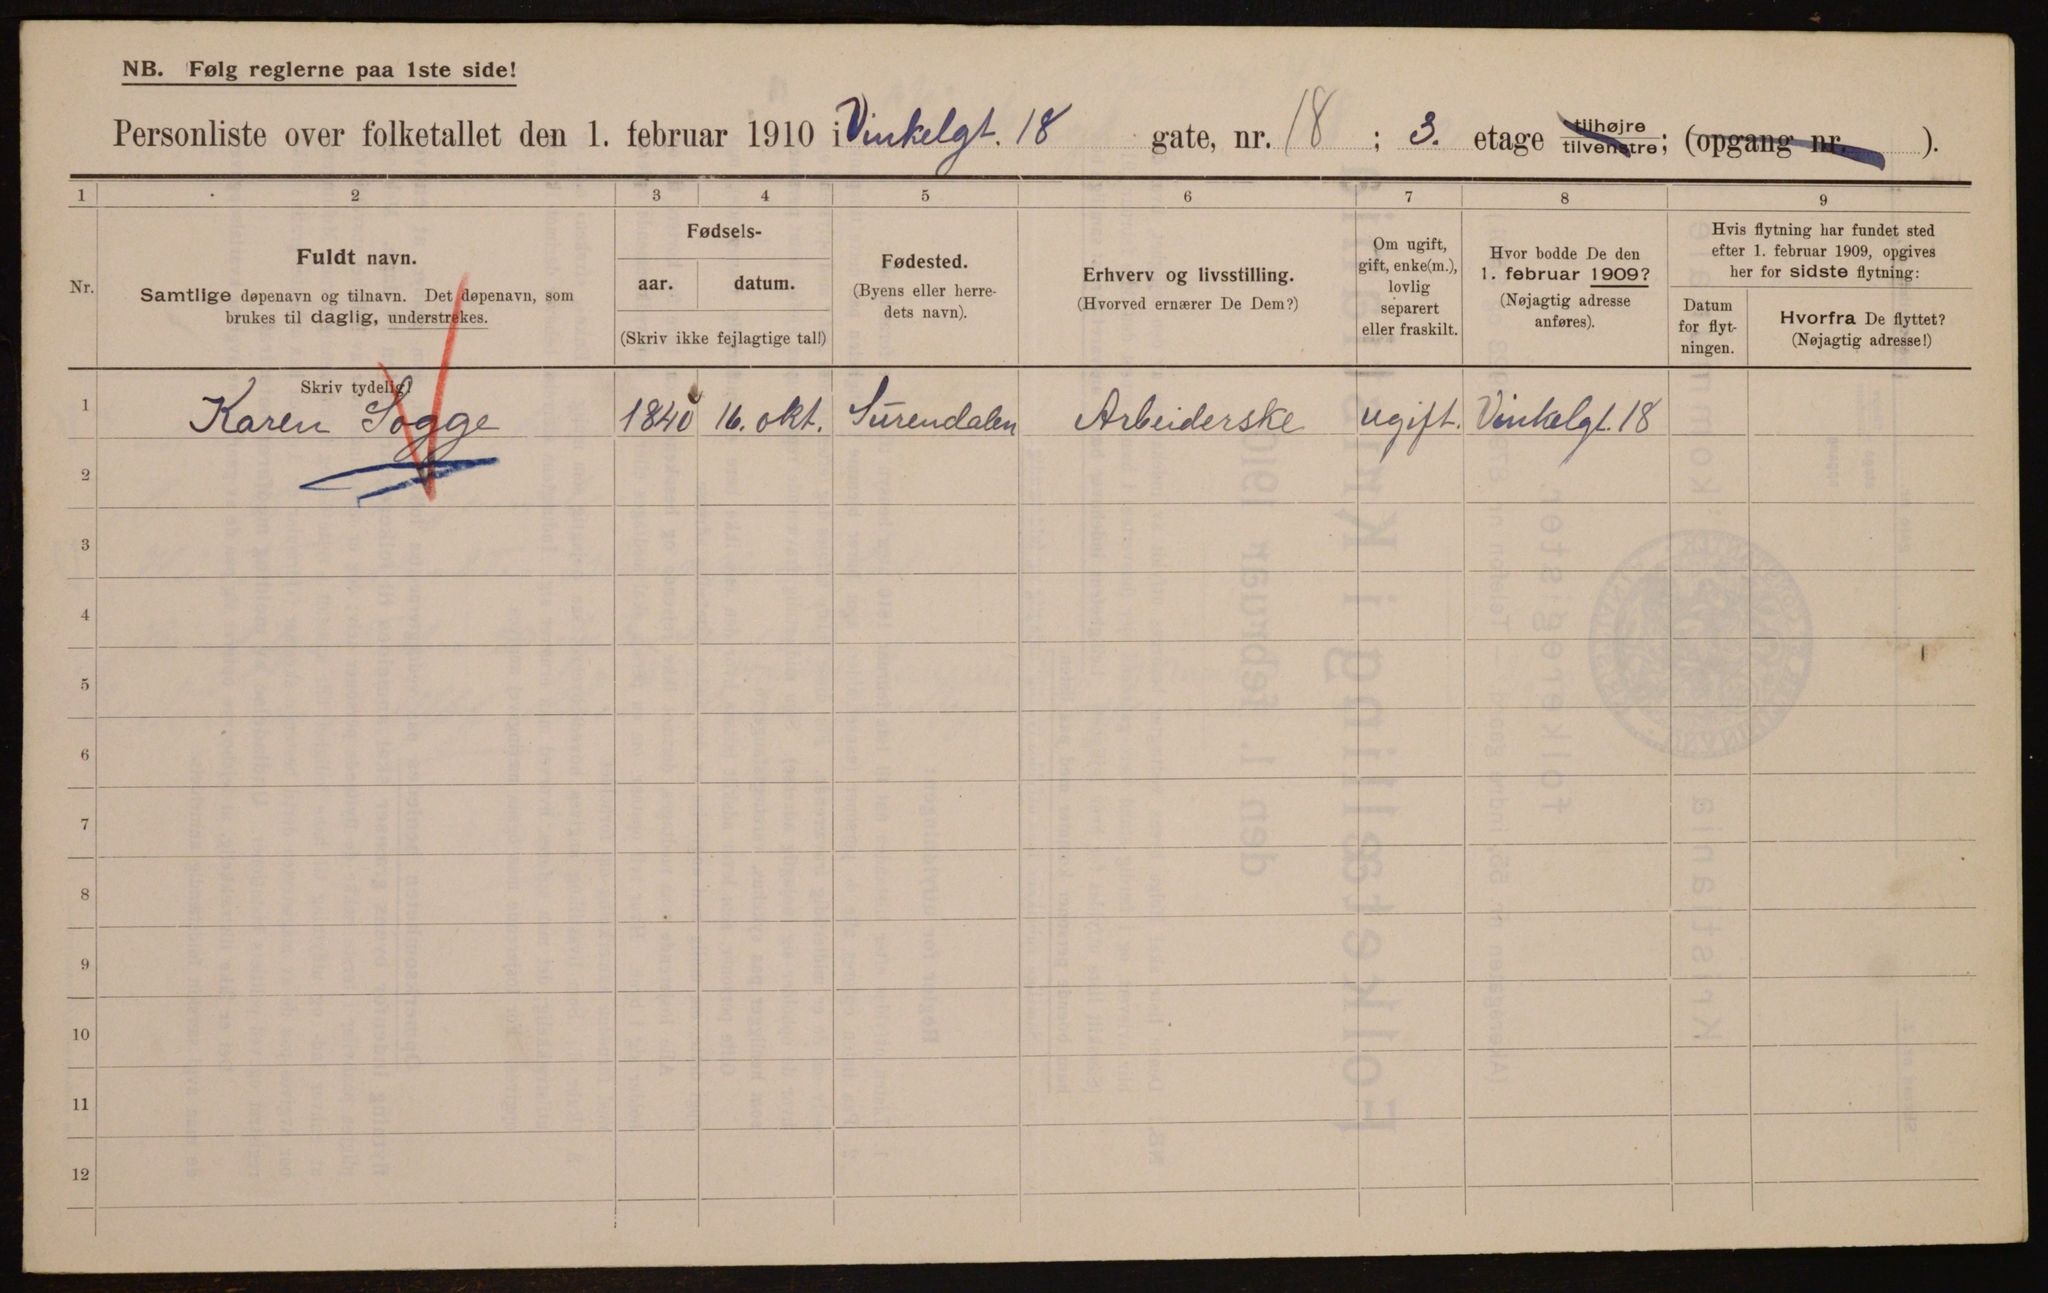 NB. Følg reglerne paa 1ste side!
Personliste over folketallet den 1. februar 1910 i Vinkelgt. 18 gate, nr. 18 ; 3. etage tilhøjre tilvenstre ; (opgang nr. ).
1 2 3 4 5 6 7 8 9
Nr.
Fuldt navn.
Samtlige døpenavn og tilnavn. Det døpenavn, som
brukes til daglig, understrekes.
Fødsels-
aar. datum.
(Skriv ikke fejlagtige tal!)
Fødested.
(Byens eller herre-
dets navn).
Erhverv og livsstilling.
(Hvorved ernærer De Dem?)
Om ugift,
gift, enke(m.),
lovlig
separert
eller fraskilt.
Hvor bodde De den
1. februar 1909?
(Nøjagtig adresse
anføres).
Hvis flytning har fundet sted
efter 1. februar 1909, opgives
her for sidste flytning:
Datum
for flyt-
ningen.
Hvorfra De flyttet?
(Nøjagtig adresse!)
Skriv tydelig!
1 Karen Sogge 1840 16. okt. Surendalen Arbeiderske ugift. Vinkelgt. 18
2
3
4
5
6
7
8
9
10
11
12